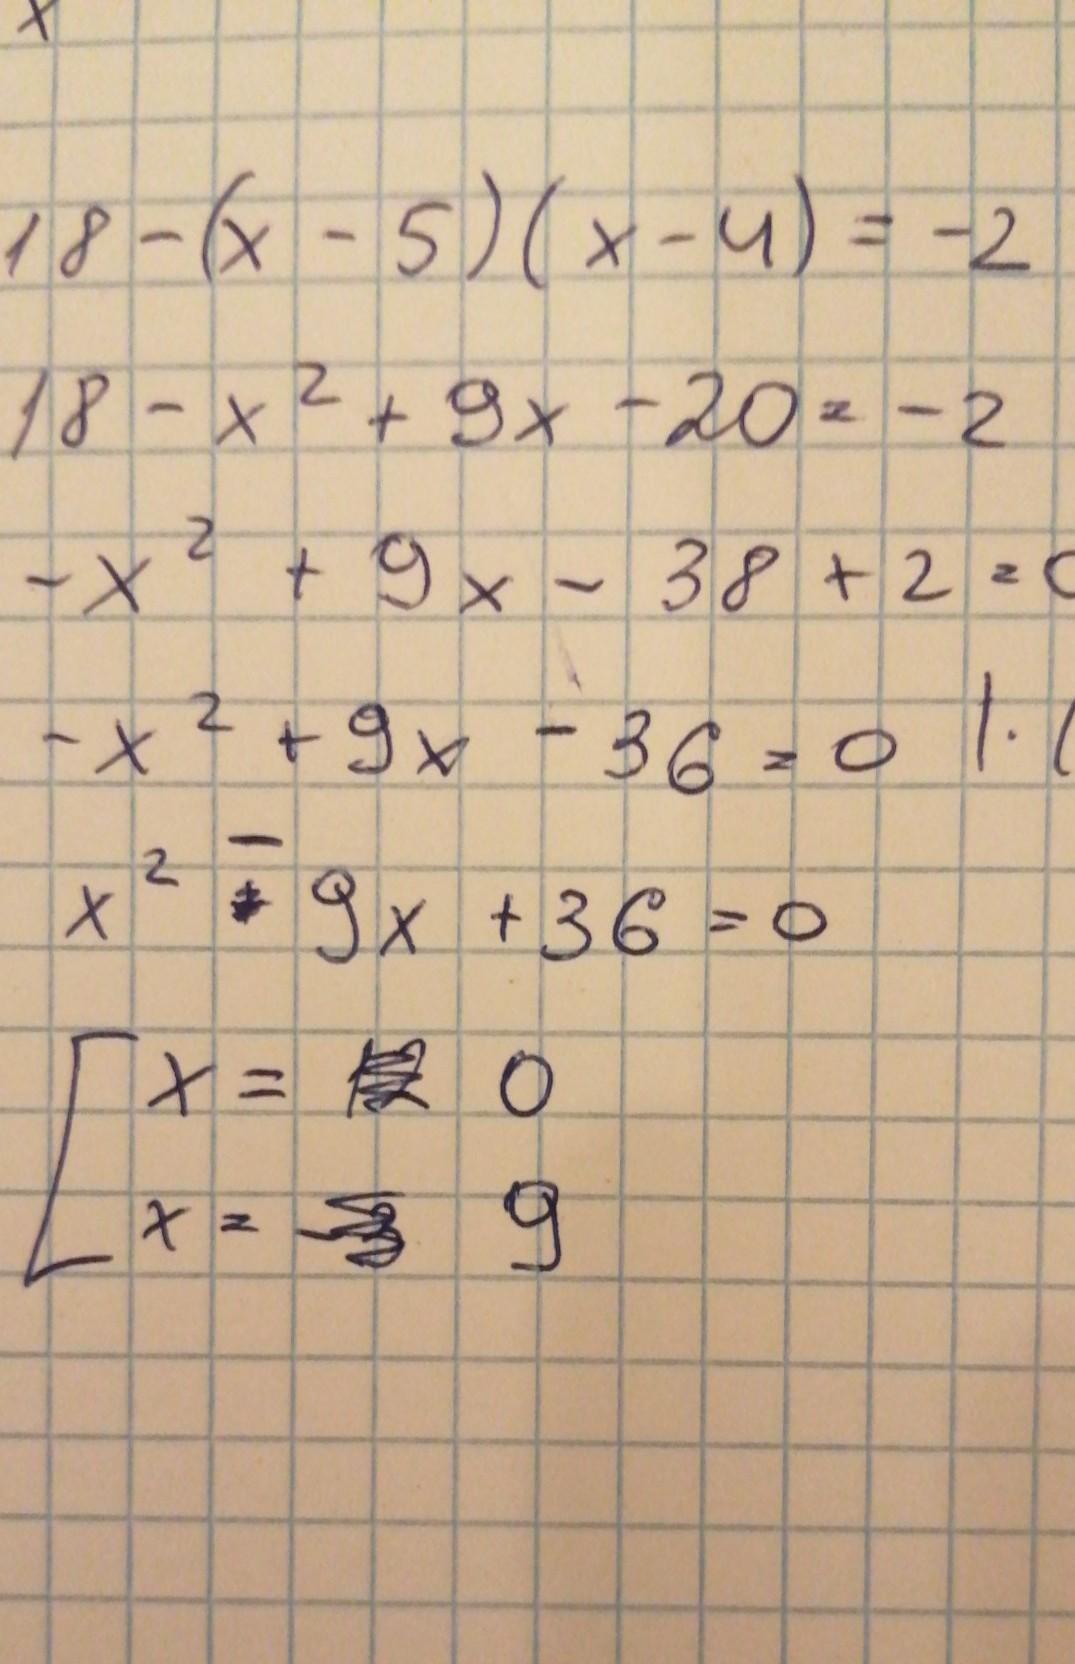 x
18 - (x - 5)(x - 4) = -2
18 - x² + 9x - 20 = -2
-x² + 9x - 38 + 2 = 0
-x² + 9x - 36 = 0 | · (
x² - 9x + 36 = 0
[ x = 0
x = 9